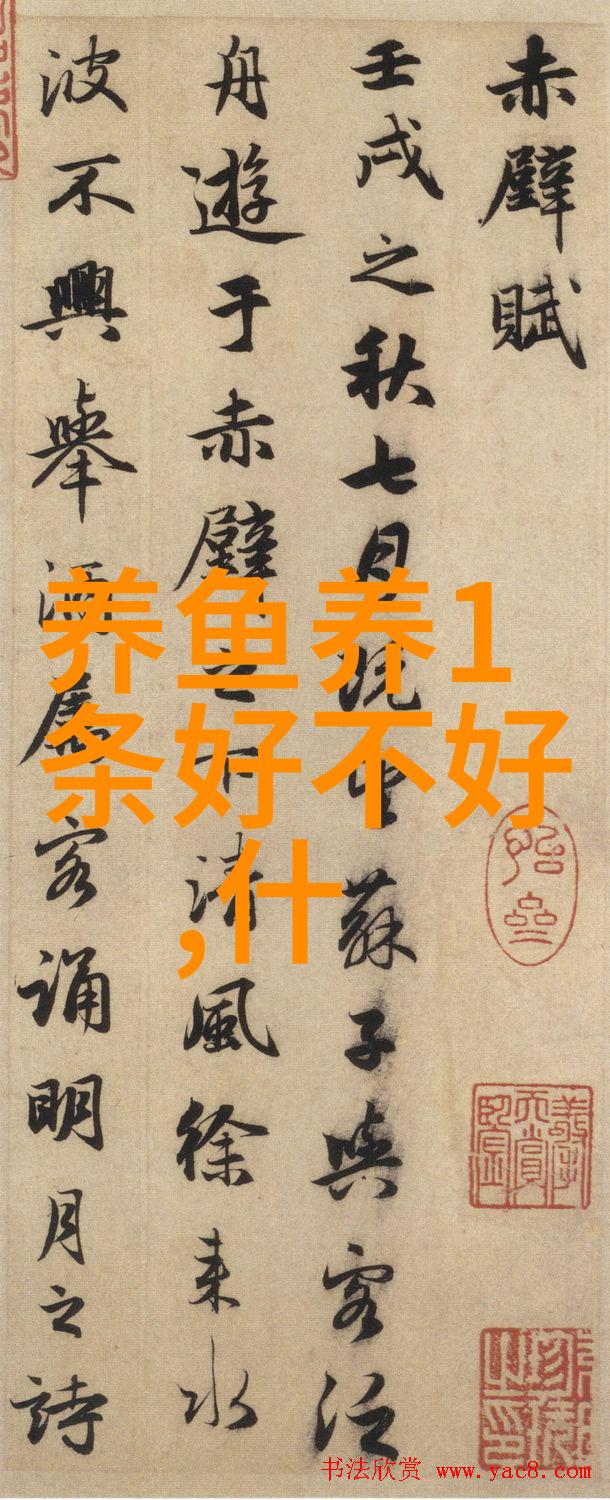 赤壁賦
壬戌之秋七月既望蘇子與客泛
舟遊于赤壁之下清風徐来水
波不興舉酒屬客誦明月之詩
养鱼养1
条好不好
,什
书法欣赏 www.yac8.com